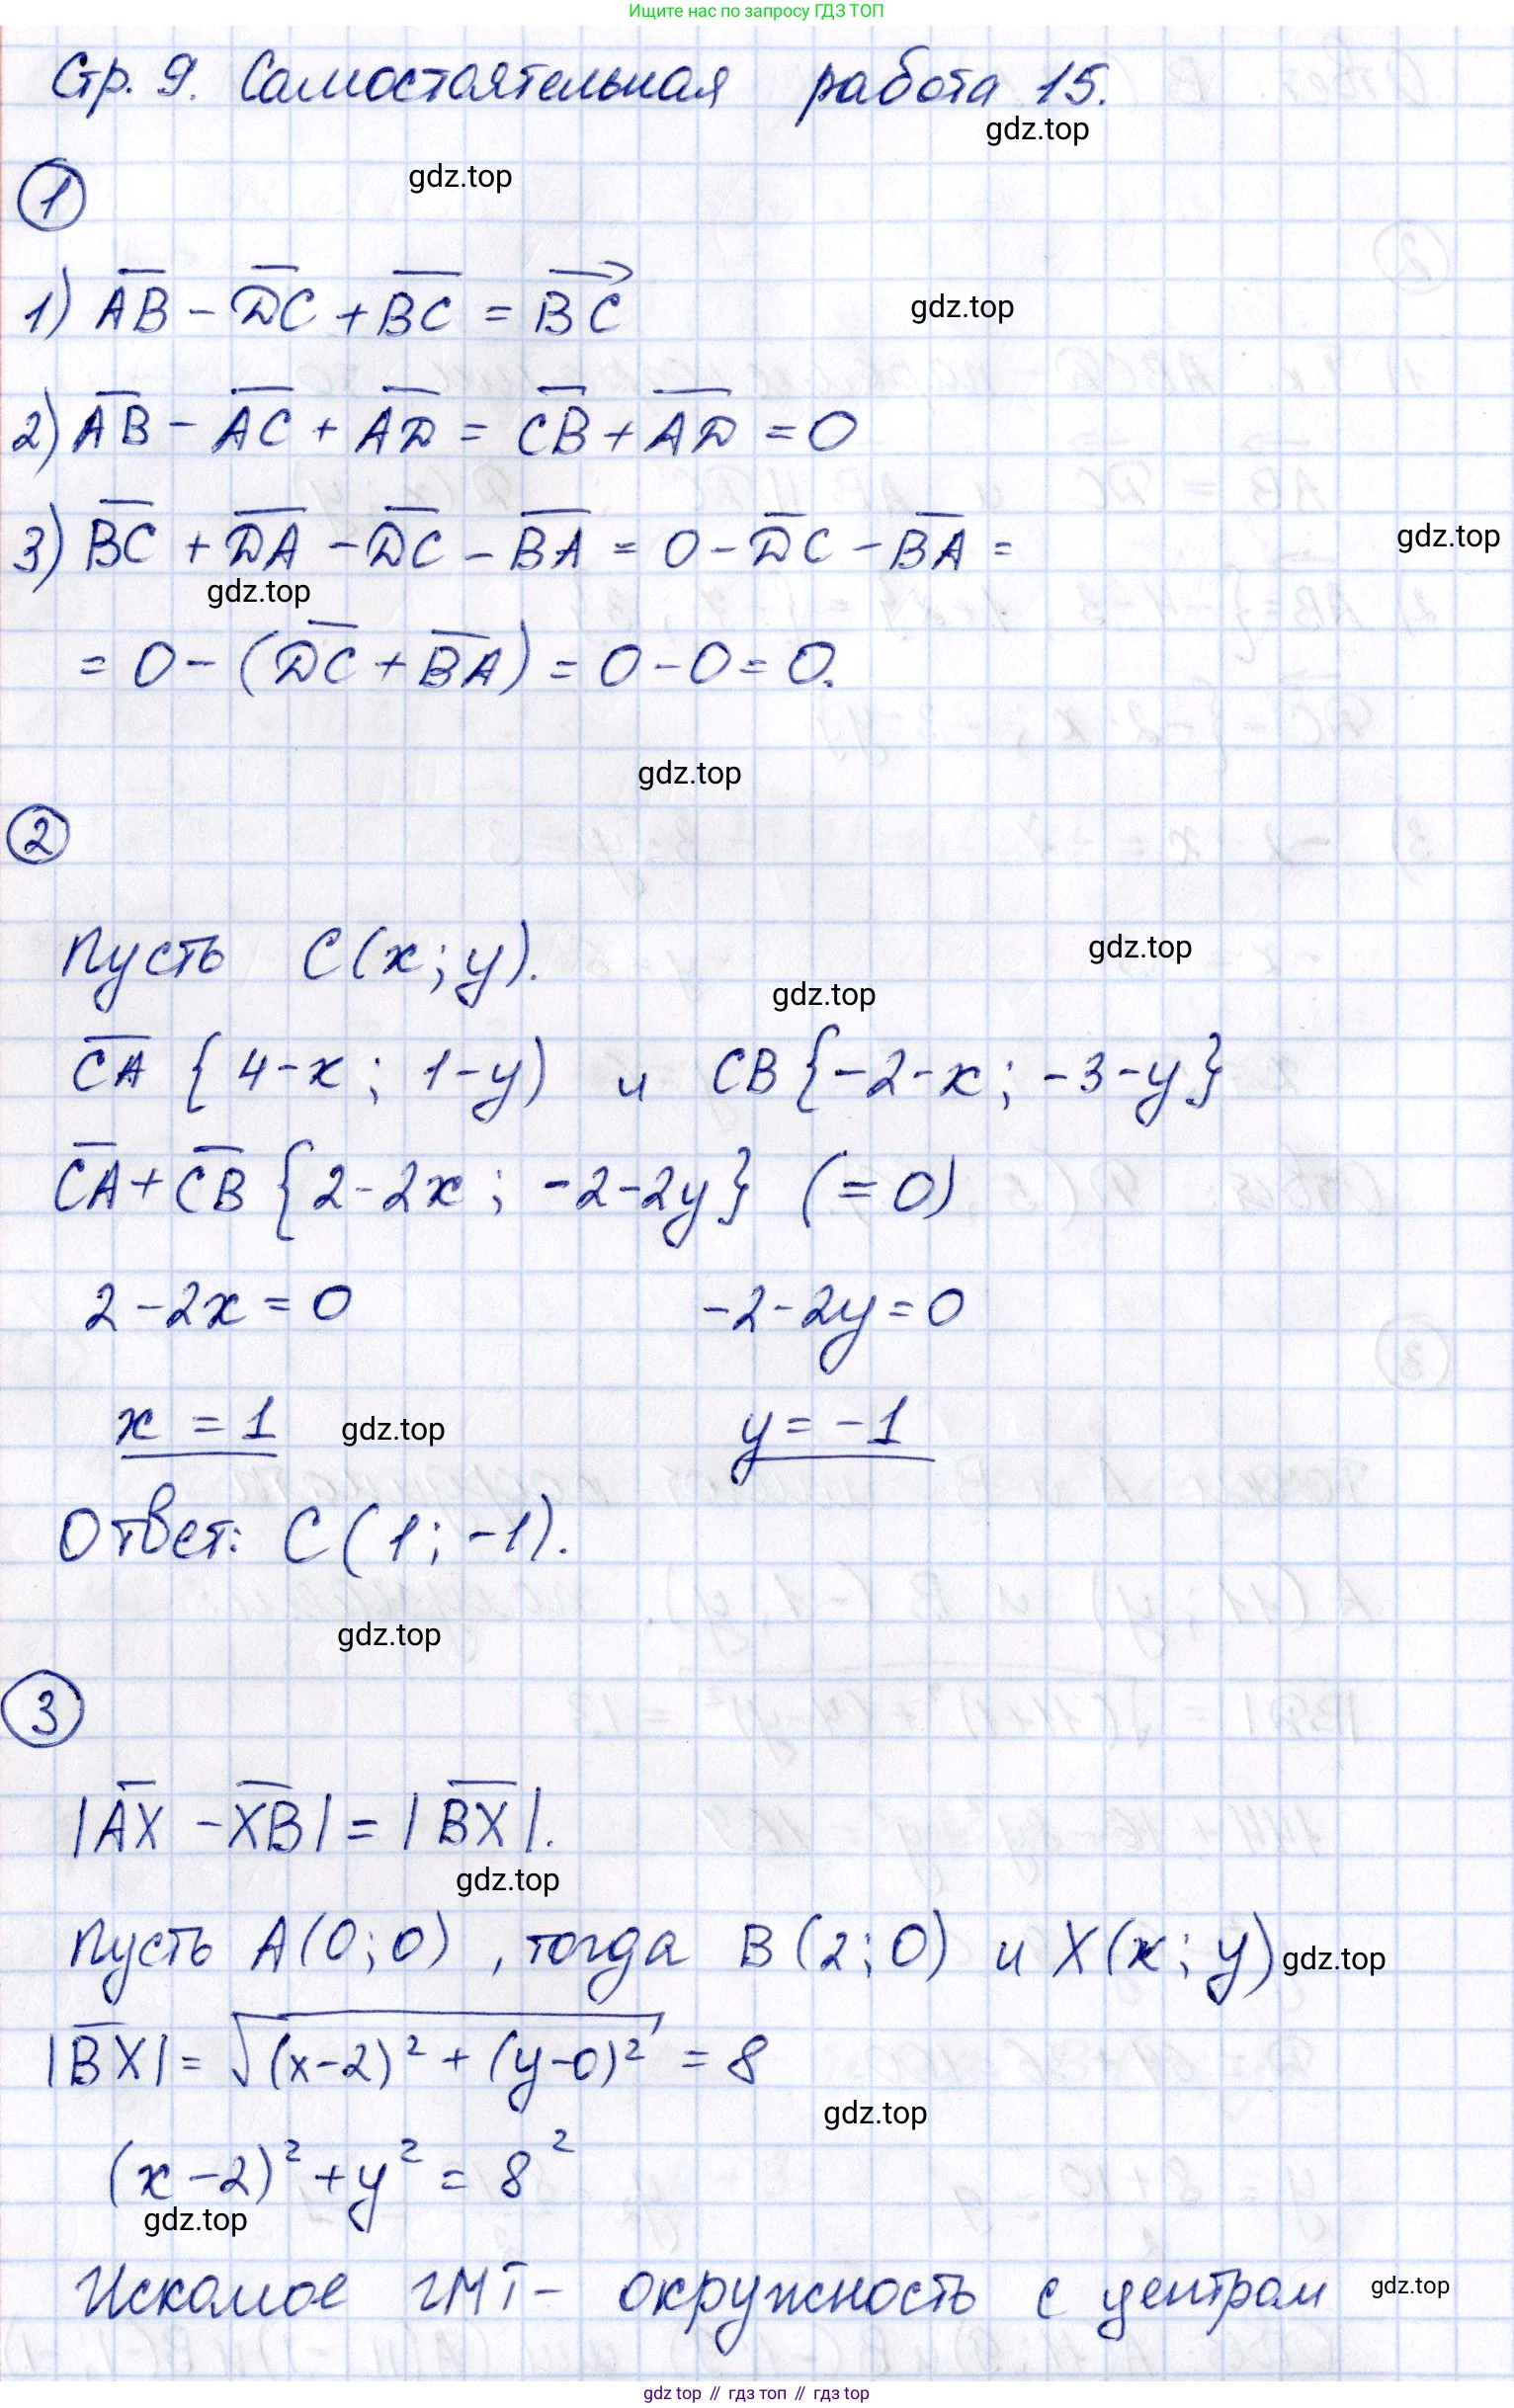 Ищите нас по запросу ГДЗ ТОП
Стр. 9. Самостоятельная работа 15.
gdz.top
gdz.top
1
1) AB - DC + BC = BC
gdz.top
2) AB - AC + AD = CB + AD = 0
3) BC + DA - DC - BA = 0 - DC - BA =
gdz.top
gdz.top
= 0 - (DC + BA) = 0 - 0 = 0.
gdz.top
2
Пусть C(x; y).
gdz.top
gdz.top
CA {4-x; 1-y) и CB{-2-x; -3-y}
CA + CB {2-2x; -2-2y} (=0)
2-2x=0 -2-2y=0
x = 1 gdz.top y = -1
Ответ: C(1; -1).
gdz.top
3
|AX - XB| = |BX|.
gdz.top
Пусть A(0; 0), тогда B(2; 0) и X(x; y) gdz.top
|BX| = √(x-2)² + (y-0)² = 8
gdz.top
(x-2)² + y² = 8²
gdz.top
Искомое ГМТ - окружность с центром gdz.top
gdz top // гдз топ // гдз top